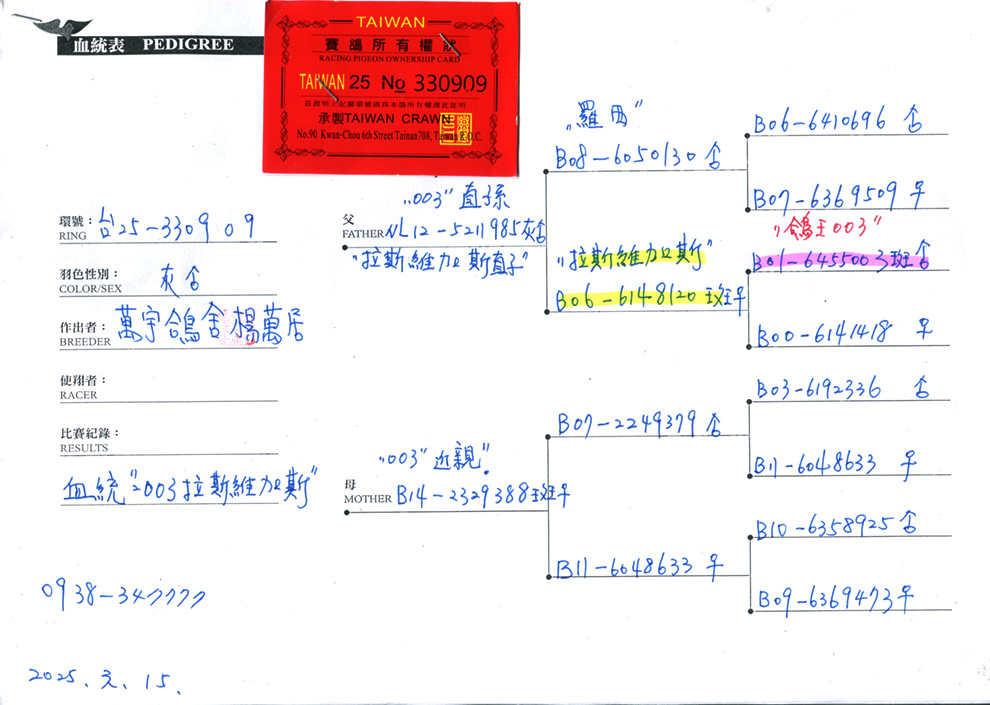 血統表 PEDIGREE
TAIWAN
賽鴿所有權狀
RACING PIGEON OWNERSHIP CARD
TAIWAN 25 No 330909
承製TAIWAN CRAWN
No.90 Kwan-Chou 6th Street Tainan708, Taiwan R.O.C.
環號：
RING
台25-330909
羽色性別：
COLOR/SEX
灰♂
作出者：
BREEDER
萬宇鴿舍 楊萬居
使翔者：
RACER
比賽紀錄：
RESULTS
血統"003拉斯維加斯"
0938-347777
2025、元、15、
"003"直子孫
父
FATHER NL12-5211985灰♂
"拉斯維加斯直子"
"003"近親"
母
MOTHER B14-2329388斑♀
"羅西"
B08-6050130 ♂
"拉斯維加斯"
B06-6148120 斑♀
B07-2249379 ♂
B11-6048633 ♀
B06-6410696 ♂
B07-6369509 ♀
"鴿王003"
B01-6455003斑♂
B00-6141418 ♀
B03-6192336 ♂
B11-6048633 ♀
B10-6358925 ♂
B09-6369473♀